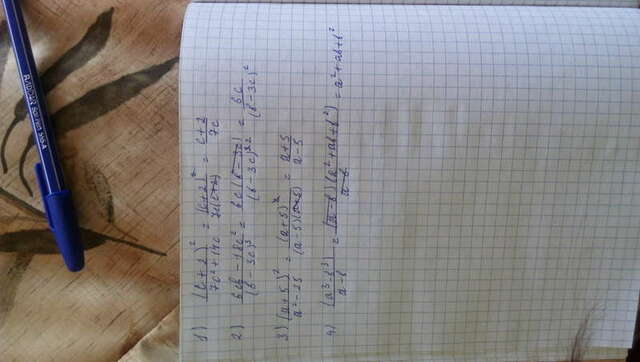 1) (c+2)²/7c²+14c = (c+2)²/7c(c+2) = c+2/7c
2) 6cb-18c²/(b-3c)³ = 6c(b-3c)/(b-3c)³ ² = 6c/(b-3c)²
3) (a+5)²/a²-25 = (a+5)²/(a-5)(a+5) = a+5/a-5
4) (a³-b³)/a-b = (a-b)(a²+ab+b²)/a-b = a²+ab+b²